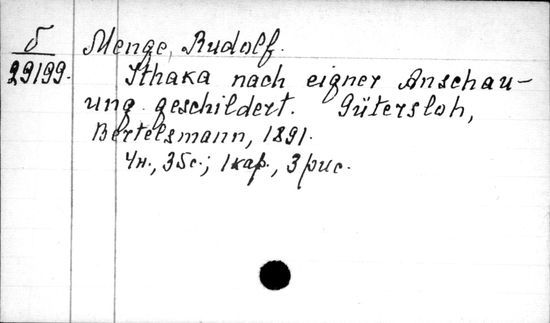 б
29199.
Menge, Rudolf.
Ithaka nach eigner Anschau-
ung geschildert. Gütersloh,
Bertelsmann, 1891.
4н., 35с.; 1 кар., 3 рис.